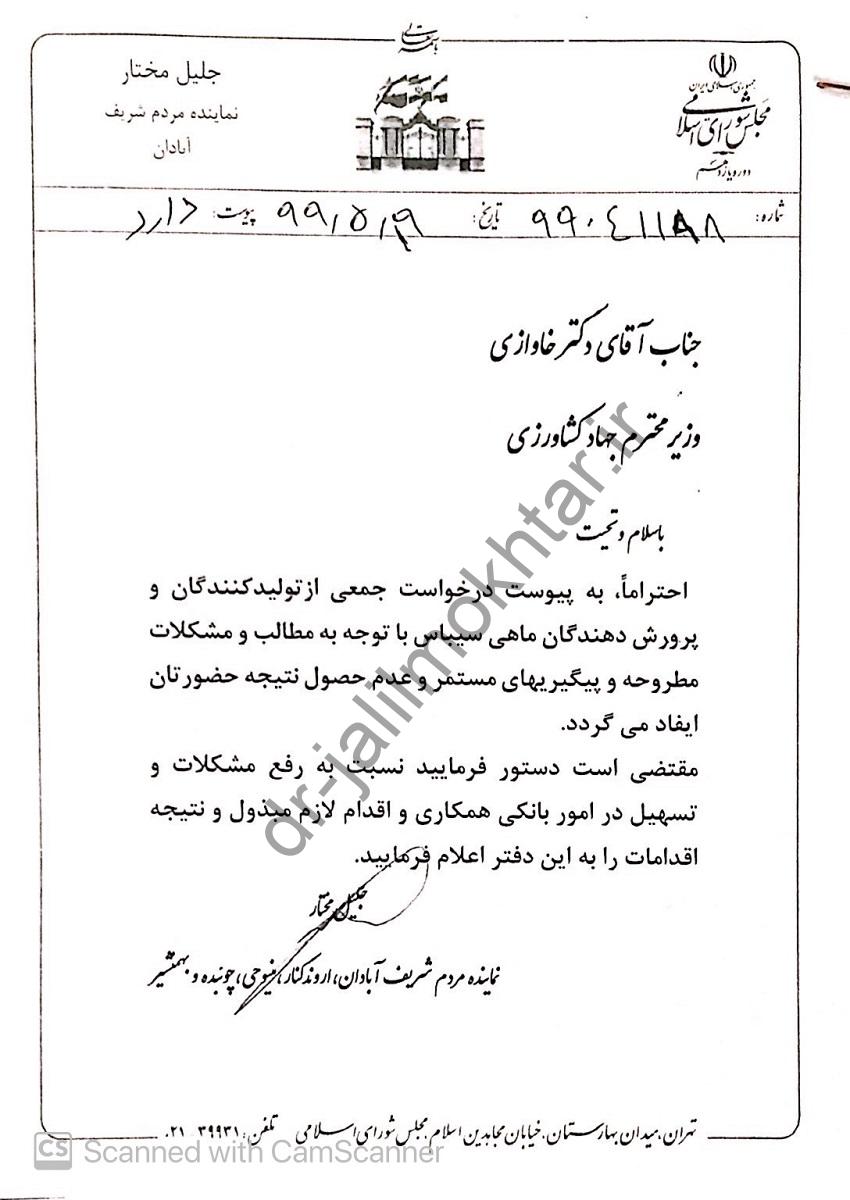 باسمه تعالی
جمهوری اسلامی ایران
مجلس شورای اسلامی
دوره یازدهم
جلیل مختار
نماینده مردم شریف
آبادان
شماره: ۹۹۰۴۱۱۸۸ تاریخ: ۹۹/۵/۱۹ پیوست: دارد
جناب آقای دکتر خاوازی
وزیر محترم جهاد کشاورزی
باسلام و تحیت
احتراماً، به پیوست درخواست جمعی از تولیدکنندگان و
پرورش دهندگان ماهی سیباس با توجه به مطالب و مشکلات
مطروحه و پیگیریهای مستمر و عدم حصول نتیجه حضورتان
ایفاد می گردد.
مقتضی است دستور فرمایید نسبت به رفع مشکلات و
تسهیل در امور بانکی همکاری و اقدام لازم مبذول و نتیجه
اقدامات را به این دفتر اعلام فرمایید.
جلیل مختار
نماینده مردم شریف آبادان، اروندکنار، مینوحی، چوئبده و بهمنشیر
تهران، میدان بهارستان، خیابان مجاهدین اسلام، مجلس شورای اسلامی تلفن: ۳۹۹۳۱ ۰۲۱
dr-jalilmokhtar.ir
CS Scanned with CamScanner